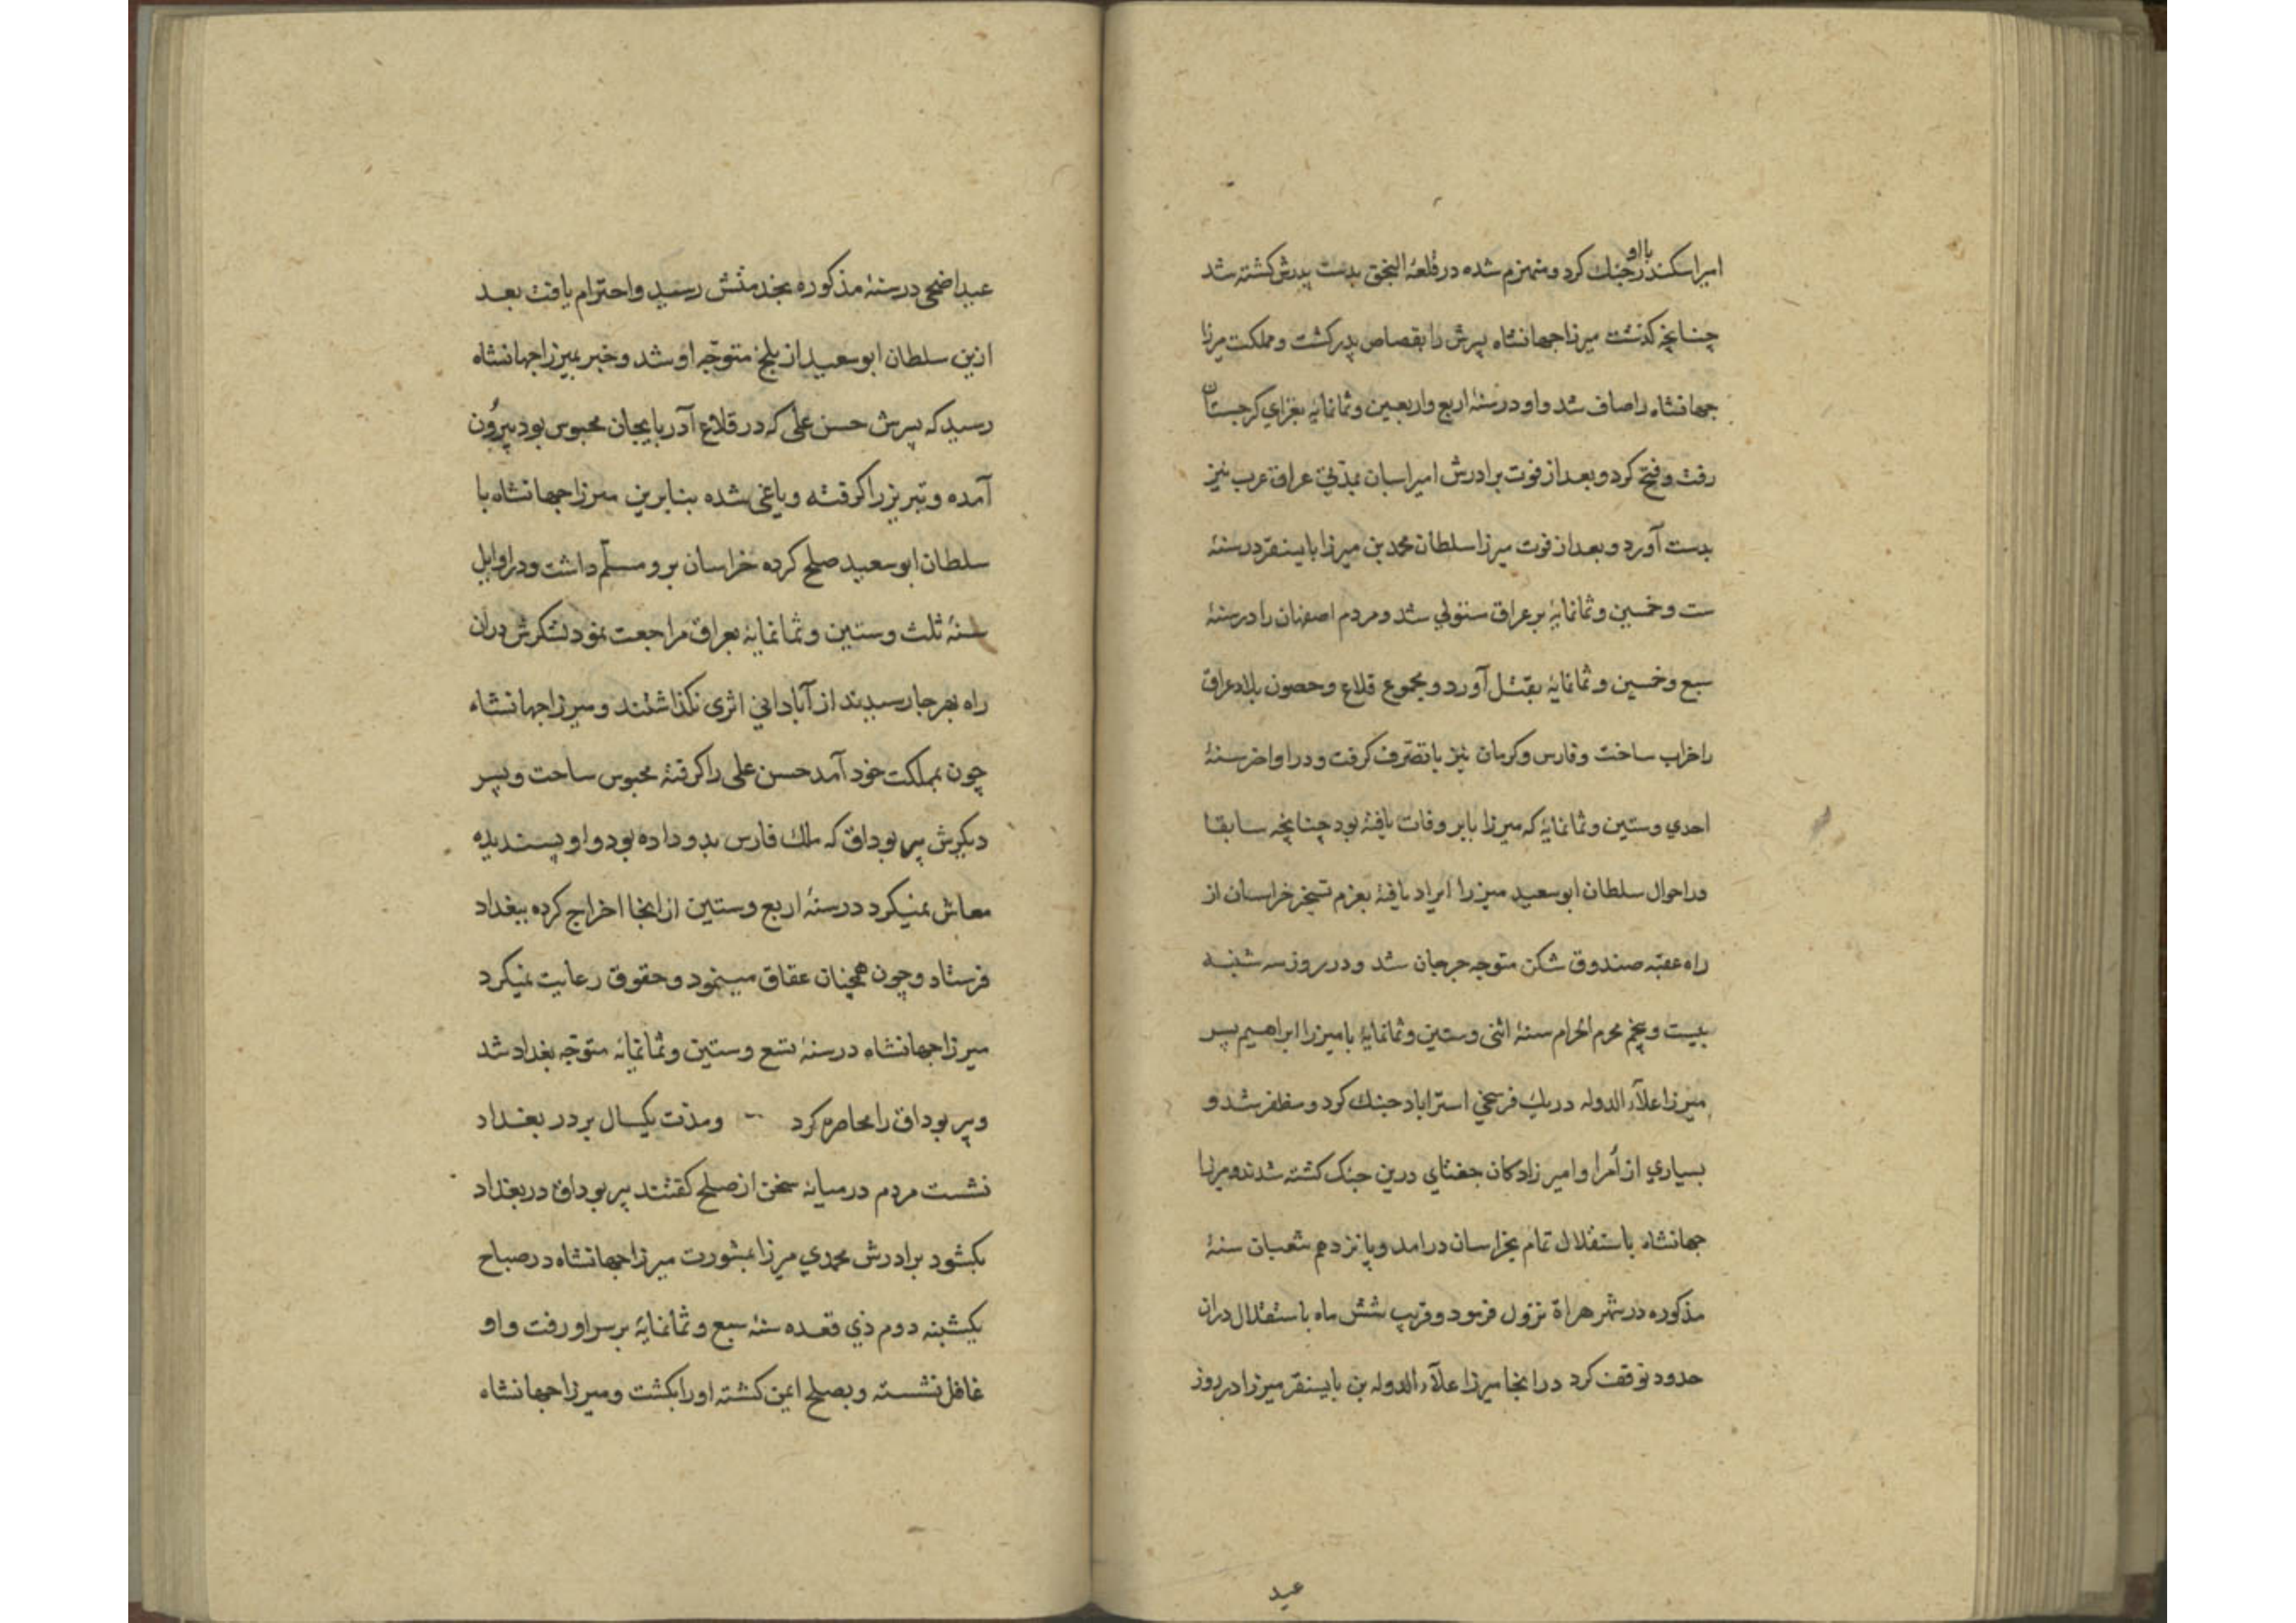 بااو
امیر اسکندر جنك کرد و منهزم شده در قلعهٔ النجق بدست پدرش کشته شد
چنانچه کذشت میرزا جهانشاه پسرش را بقصاص پدر کشت و مملکت میرزا
جهانشاه را صاف شد و او در سنهٔ اربع واربعین وثمانمایهٔ بغزاي کرجستان
رفت و فتح کرد و بعد از فوت برادرش امیر اسبان بمدّتي عراق عرب نیز
بدست آورد و بعد از فوت میرزا سلطان محمد بن میرزا بایسنقر در سنهٔ
ست وخمسین و ثمانمایهٔ بر عراق مستولي شد و مردم اصفهان را در سنهٔ
سبع وخمسین و ثمانمایهٔ بقتل آورد و مجموع قلاع وحصون بلاد عراق
را خراب ساخت و فارس و کرمان نیز با تصّرف کرفت و در اواخر سنهٔ
احدي وستین وثمانمایهٔ که میرزا بابر وفات یافتهٔ بود چنانچه سابقا
در احوال سلطان ابو سعید میرزا ایراد یافتهٔ بعزم تسخیر خراسان از
راه عقبّه صندوق شکن متوجه جرجان شد و در روز سه شنبه
بیست و پنجم محرم الحرام سنهٔ اثنی وستین وثمانمایهٔ با میرزا ابراهیم پسر
میرزا علآء الدوله در یك فرسخي استراباد جنك کرد و مظفر شد و
بسیاري از اُمرا و امیر زادکان جغتاي درین جنک کشته شدند و میرزا
جهانشاه باستقلال تمام بخراسان درامد و پانزدهم شعبان سنهٔ
مذکوره در شهر هراة نزول فرمود و قریب شش ماه باستقلال دران
حدود توقف کرد درانجا میرزا علآء الدوله بن بایسنقر میرزا در روز
عید
عید اضحی در سنهٔ مذکوره بخدمتش رسید و احترام یافت بعد
ازین سلطان ابو سعید از بلخ متوجّه او شد و خبر بمیرزا جهانشاه
رسید که پسرش حسن علی که در قلاع آذربایجان محبوس بود بیرُون
آمده و تبریز را کرفته و یاغی شده بنابرین میرزا جهانشاه با
سلطان ابو سعید صلح کرده خراسان برو مسلّم داشت و در اوایل
سنهٔ ثلث وستین و ثمانمایهٔ بعراق مراجعت نمود لشکرش دران
راه بهر جا رسیدند از آباداني اثری نکذاشتند و میرزا جهانشاه
چون بمملکت خود آمد حسن علی را کرفتهٔ محبوس ساخت و پسر
دیکرش پیر بوداق که ملك فارس بدو داده بود و او پسندیده
معاش نمیکرد در سنهٔ اربع وستین از انجا اخراج کرده ببغداد
فرستاد و چون همچنان عقاق مینمود و حقوق رعایت نمیکرد
میرزا جهانشاه در سنهٔ تسع وستین وثمانمایهٔ متوجّه بغداد شد
و پیر بوداق را محاصره کرد ومدّت یکسال بر در بغداد
نشست مردم درمیانه سخن از صلح کفتند پیر بوداق در بغداد
بکشود برادرش محمدي میرزا بمشورت میرزا جهانشاه در صباح
یکشبنه دوم ذي قعده سنهٔ سبع وثمانمایهٔ بر سر او رفت و او
غافل نشسته و بصلح ایمن کشته او را بکشت و میرزا جهانشاه